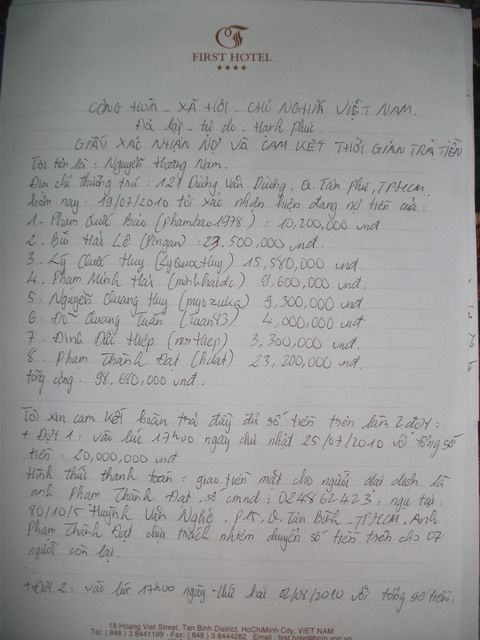 FIRST HOTEL
★★★★
CỘNG HÒA - XÃ HỘI - CHỦ NGHĨA VIỆT NAM.
Độc lập - tự do - Hạnh phúc.
GIẤY XÁC NHẬN NỢ VÀ CAM KẾT THỜI GIAN TRẢ TIỀN
Tôi tên là: Nguyễn Hoàng Nam.
Địa chỉ thường trú: 127 Dương Văn Dương, Q. Tân Phú, TPHCM.
hôm nay: 19/07/2010 tôi xác nhận hiện đang nợ tiền của:
1. Phạm Quốc Bảo (phambao1978): 10,200,000 vnđ.
2. Bùi Hải Lê (Pengan): 23,500,000 vnđ.
3. Lý Quốc Huy (lyquochuy) 15,580,000 vnđ.
4. Phạm Minh Hải (minhhaidc) 9,600,000 vnđ
5. Nguyễn Quang Huy (myozuka) 9,300,000 vnđ
6. Đỗ Quang Tuấn (tuan83) 4,000,000 vnđ
7. Đinh Đức Thiệp (mrthiep) 3,300,000 vnđ
8. Phạm Thành Đạt (hdat) 23,200,000 vnđ
tổng cộng: 98,680,000 vnđ.
Tôi xin cam kết hoàn trả đầy đủ số tiền trên làm 2 đợt:
+ Đợt 1: vào lúc 17h00 ngày chủ nhật 25/07/2010 với tổng số
tiền: 20,000,000 vnđ
Hình thức thanh toán: giao tiền mặt cho người đại diện là
anh Phạm Thành Đạt, số cmnd: 024862423, ngụ tại:
80/10/5 Huỳnh Văn Nghệ, P15, Q. Tân Bình - TPHCM. Anh
Phạm Thành Đạt chịu trách nhiệm chuyển số tiền trên cho 07
người còn lại.
+ Đợt 2: vào lúc 17h00 ngày thứ hai 02/08/2010 với tổng số tiền:
18 Hoang Viet Street, Tan Binh District, HoChiMinh City, VIET NAM
Tel: (848) 3.8441199 - Fax: (848) 3.8444282 Email: first.hotel@hcm.vnn.vn